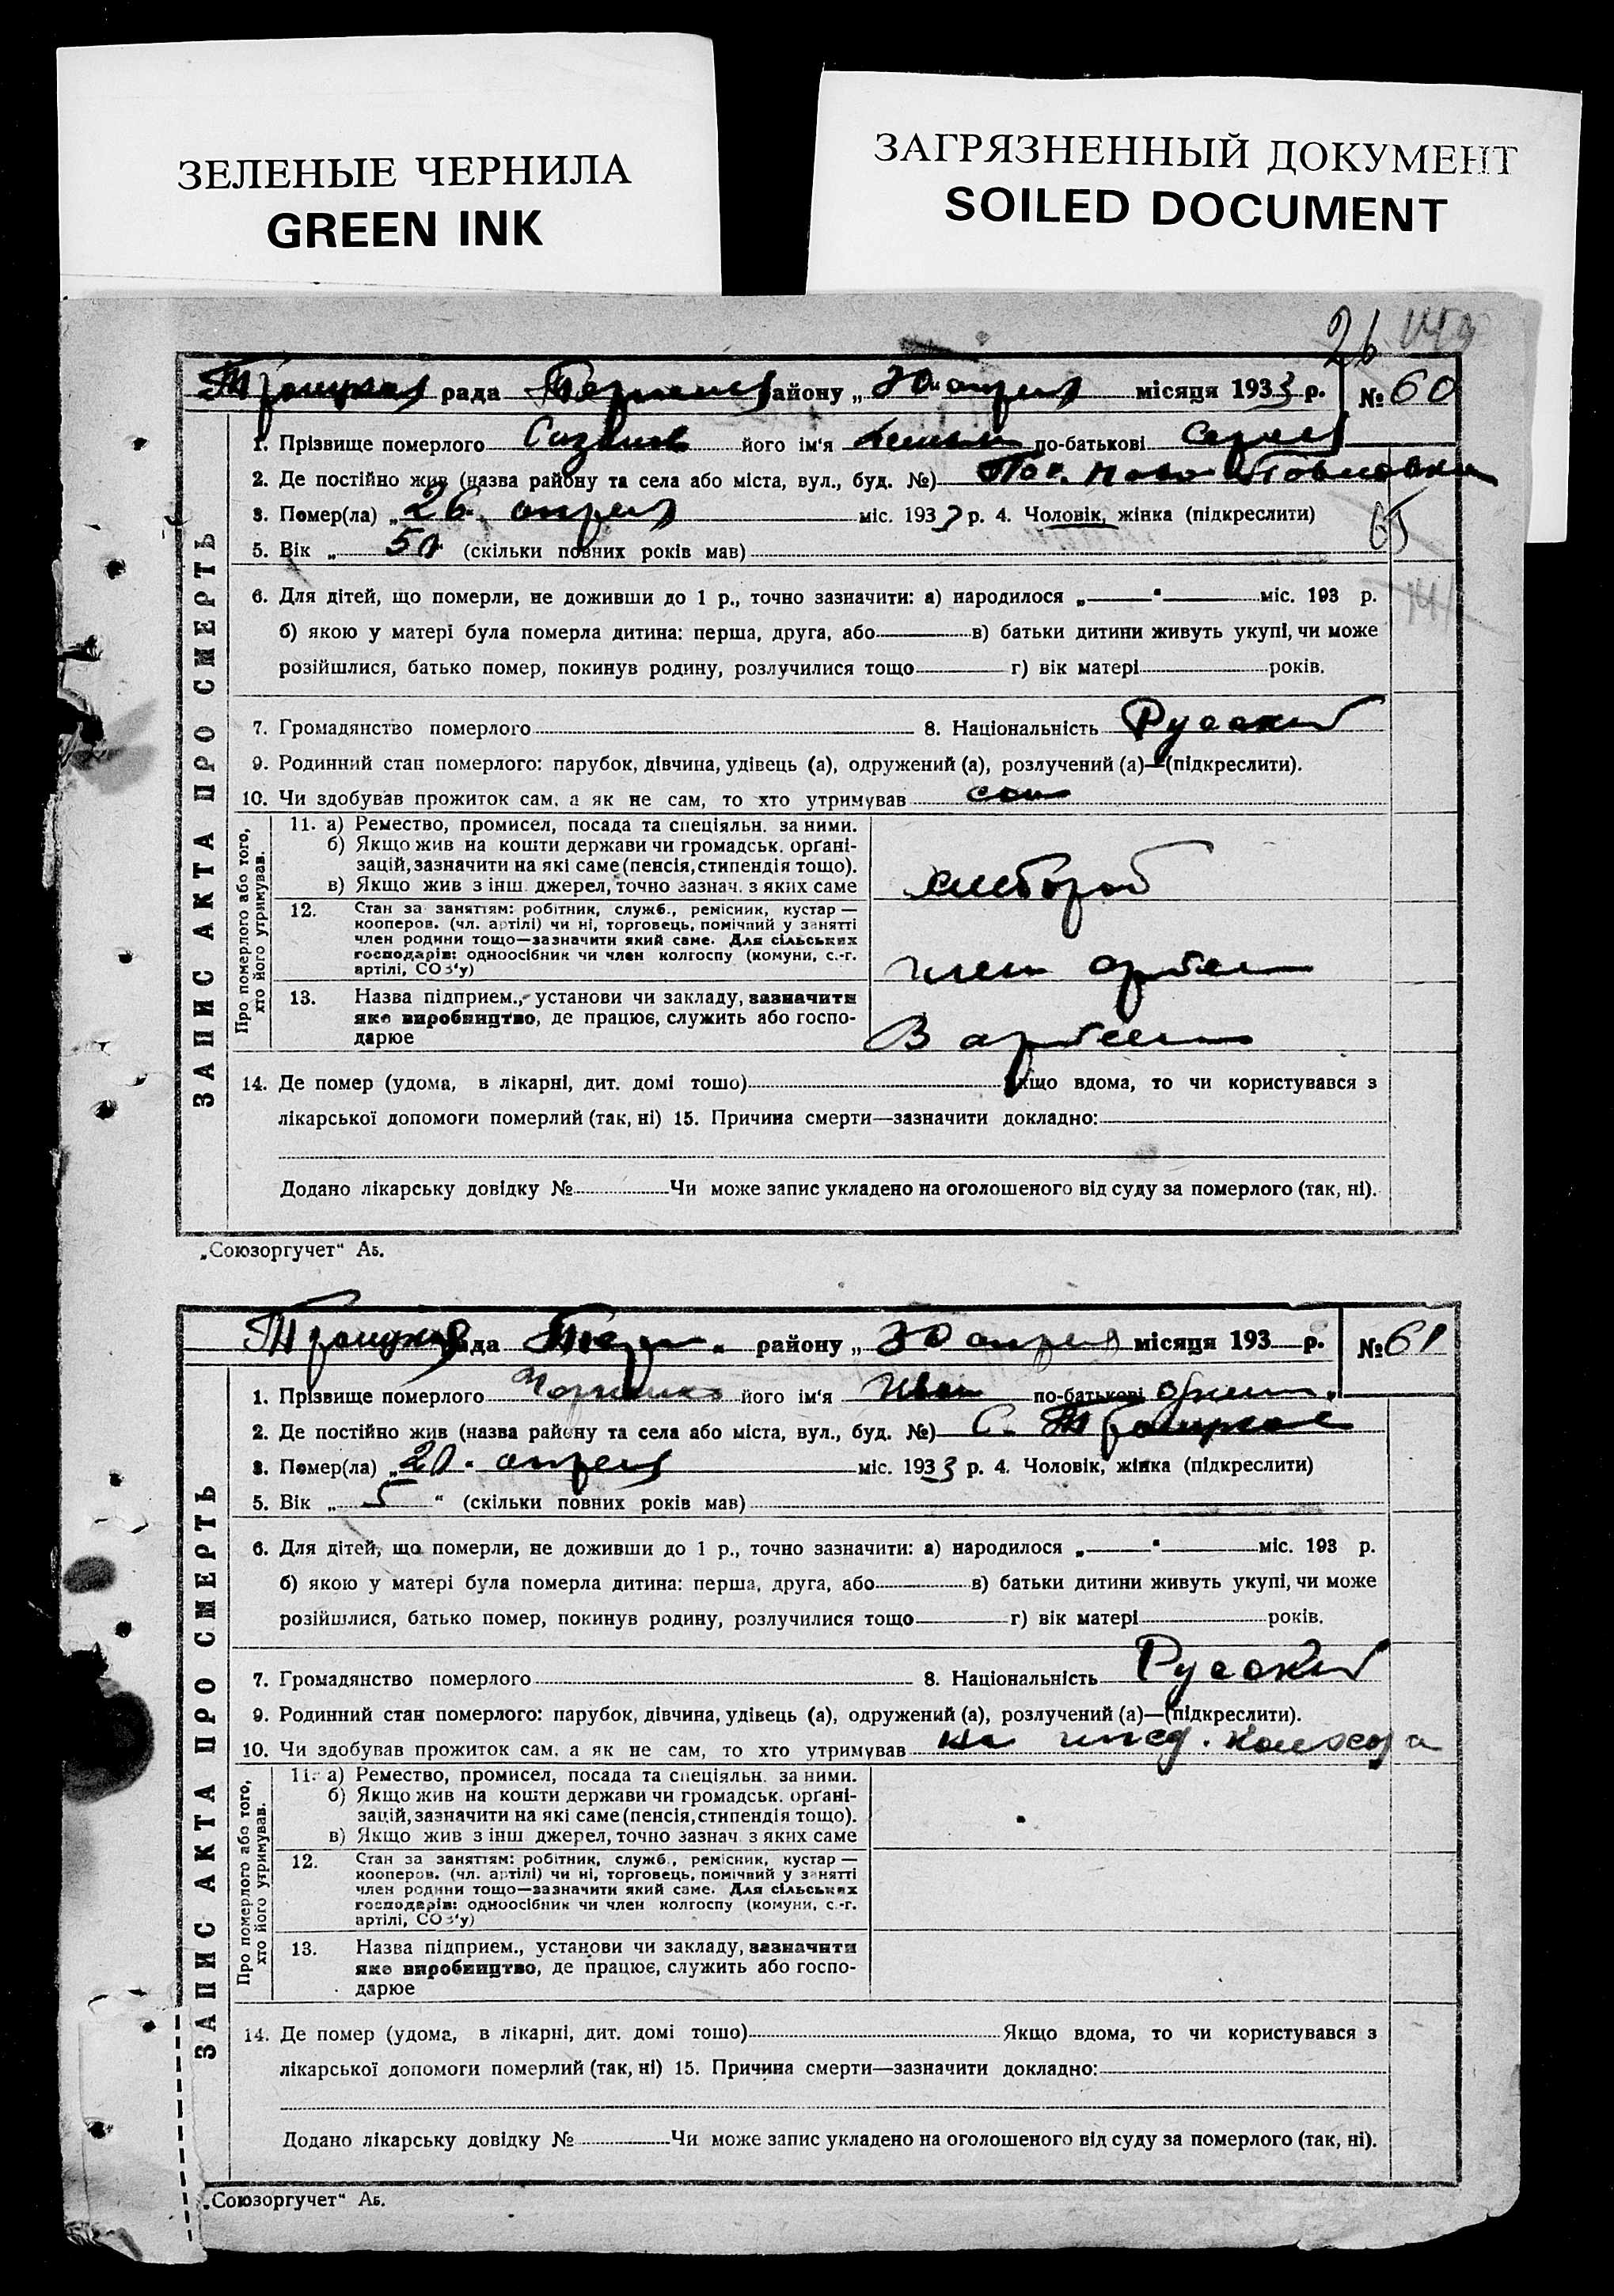 ЗЕЛЕНЫЕ ЧЕРНИЛА
GREEN INK
ЗАГРЯЗНЕННЫЙ ДОКУМЕНТ
SOILED DOCUMENT
26
ЗАПИС АКТА ПРО СМЕРТЬ
Троицкая рада району „30" апреля місяця 1933 р. № 60
1. Прізвище померлого його ім'я по-батькові
2. Де постійно жив (назва району та села або міста, вул., буд. №) Пос. Ново
3. Помер(ла) „26. апреля міс. 1933 р. 4. Чоловік, жінка (підкреслити)
65
5. Вік „ 50 (скільки повних років мав)
6. Для дітей, що померли, не доживши до 1 р., точно зазначити: а) народилося „ " міс. 193 р.
б) якою у матері була померла дитина: перша, друга, або в) батьки дитини живуть укупі, чи може
розійшлися, батько помер, покинув родину, розлучилися тощо г) вік матері років.
7. Громадянство померлого 8. Національність Русский
9. Родинний стан померлого: парубок, дівчина, удівець (а), одружений (а), розлучений (а)—(підкреслити).
10. Чи здобував прожиток сам, а як не сам, то хто утримував сам
Про померлого або того, хто його утримував.
11. а) Ремество, промисел, посада та спеціяльн. за ними.
б) Якщо жив на кошти держави чи громадськ. орґані-
зацій, зазначити на які саме (пенсія, стипендія тощо).
в) Якщо жив з інш. джерел, точно зазнач. з яких саме
хлебороб
12. Стан за заняттям: робітник, служб., ремісник, кустар —
кооперов. (чл. артілі) чи ні, торговець, помічний у занятті
член родини тощо—зазначити який саме. Для сільських
господарів: одноосібник чи член колгоспу (комуни, с.-г.
артілі, СОЗ'у)
член артели
13. Назва підприєм., установи чи закладу, зазначити
яке виробництво, де працює, служить або госпо-
дарює
В артели
14. Де помер (удома, в лікарні, дит. домі тошо) Якщо вдома, то чи користувався з
лікарської допомоги померлий (так, ні) 15. Причина смерти—зазначити докладно:
Додано лікарську довідку № Чи може запис укладено на оголошеного від суду за померлого (так, ні).
„Союзоргучет" Аб.
ЗАПИС АКТА ПРО СМЕРТЬ
Троицкая рада району „30 апреля місяця 193 р. № 61
1. Прізвище померлого його ім'я Иван по-батькові
2. Де постійно жив (назва району та села або міста, вул., буд. №) С. Троицкое
3. Помер(ла) „ апреля міс. 1933 р. 4. Чоловік, жінка (підкреслити)
5. Вік „ 5 " (скільки повних років мав)
6. Для дітей, що померли, не доживши до 1 р., точно зазначити: а) народилося „ " міс. 193 р.
б) якою у матері була померла дитина: перша, друга, або в) батьки дитини живуть укупі, чи може
розійшлися, батько помер, покинув родину, розлучилися тощо г) вік матері років.
7. Громадянство померлого 8. Національність Русский
9. Родинний стан померлого: парубок, дівчина, удівець (а), одружений (а), розлучений (а)—(підкреслити).
10. Чи здобував прожиток сам, а як не сам, то хто утримував на колхоза
Про померлого або того, хто його утримував.
11. а) Ремество, промисел, посада та спеціяльн. за ними.
б) Якщо жив на кошти держави чи громадськ. орґані-
зацій, зазначити на які саме (пенсія, стипендія тощо).
в) Якщо жив з інш джерел, точно зазнач. з яких саме
12. Стан за заняттям: робітник, служб., ремісник, кустар —
кооперов. (чл. артілі) чи ні, торговець, помічний у занятті
член родини тощо—зазначити який саме. Для сільських
господарів: одноосібник чи член колгоспу (комуни, с.-г.
артілі, СОЗ'у)
13. Назва підприєм., установи чи закладу, зазначити
яке виробництво, де працює, служить або госпо-
дарює
14. Де помер (удома, в лікарні, дит. домі тошо) Якщо вдома, то чи користувався з
лікарської допомоги померлий (так, ні) 15. Причина смерти—зазначити докладно:
Додано лікарську довідку № Чи може запис укладено на оголошеного від суду за померлого (так, ні).
„Союзоргучет" Аб.